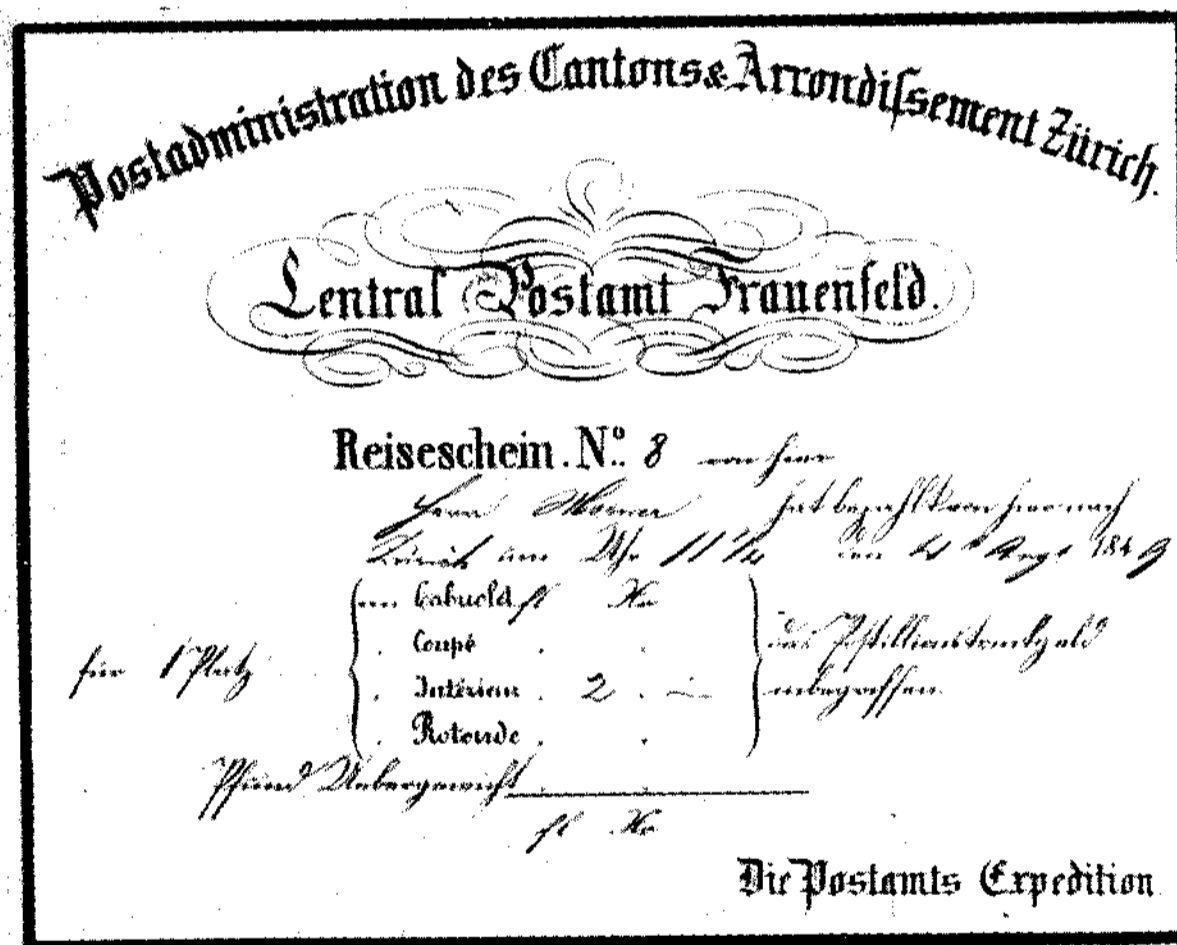 Postadministration des Cantons & Arrondissement Zürich.
Central Postamt Frauenfeld.
Reiseschein. No. 8 von hier
Herr hat bezahlt von hier nach
Zürich um Uhr 11 1/4 den Aug. 1849
im Cabriolet fl Kr
. Coupé . .
für 1 Platz . Intérieur . 2 . —
. Rotonde . .
das Postillionstrinkgeld
inbegriffen.
Pfund Uebergewicht . .
fl Kr
Die Postamts Expedition